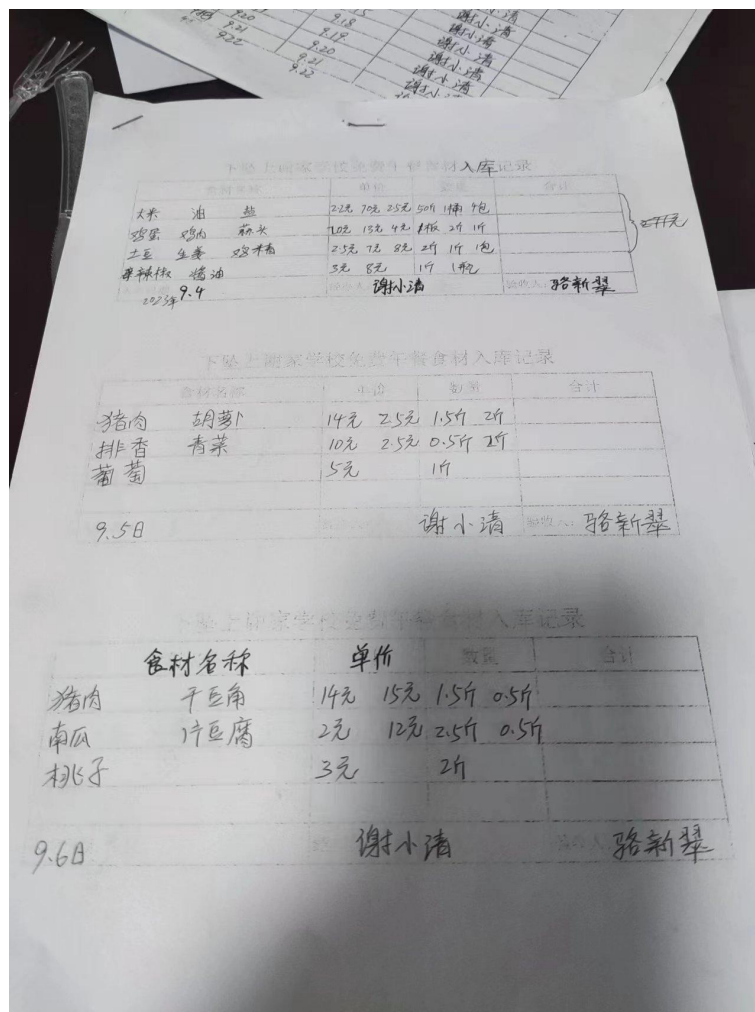 9.18
谢小清
9.20
9.19
谢小清
9.21
9.20
谢小清
9.22
9.21
谢小清
9.22
谢小清
入库记录
食材名称 单价 数量 合计
大米 油 盐 2.2元 70元 2.5元 50斤 1桶 4包
鸡蛋 鸡肉 蒜头 20元 13元 4元 1板 2斤 1斤
土豆 生姜 鸡精 2.5元 7元 8元 2斤 1斤 1包
辣椒 酱油 3元 8元 1斤 1瓶
2023年 9.4 谢小清 验收人: 骆新翠
学校免费午餐食材入库记录
食材名称 单价 数量 合计
猪肉 胡萝卜 14元 2.5元 1.5斤 2斤
排香 青菜 10元 2.5元 0.5斤 2斤
葡萄 5元 1斤
9.5日 谢小清 验收人: 骆新翠
学校免费午餐食材入库记录
食材名称 单价 数量 合计
猪肉 干豆角 14元 15元 1.5斤 0.5斤
南瓜 片豆腐 2元 12元 2.5斤 0.5斤
桃子 3元 2斤
9.6日 谢小清 骆新翠